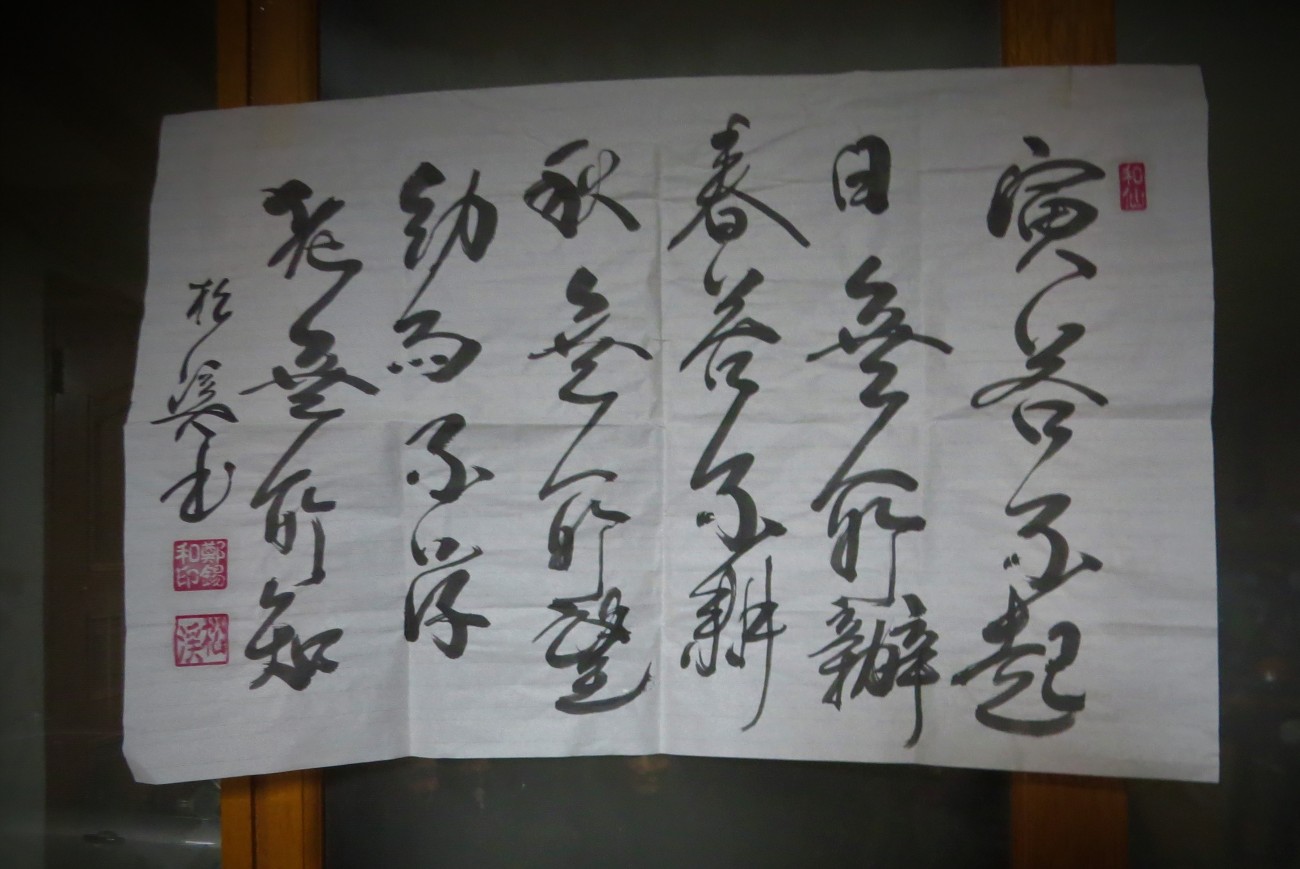 和仙
寅若不起
日無所辦
春若不耕
秋無所望
幼而不學
老無所知
松溪書
鄭錫和印
松溪